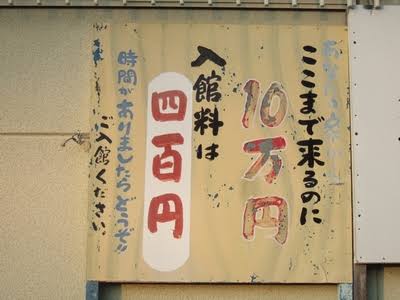 ここまで来るのに
10万円
入館料は
四百円
時間がありましたらどうぞ!!
ご入館ください。